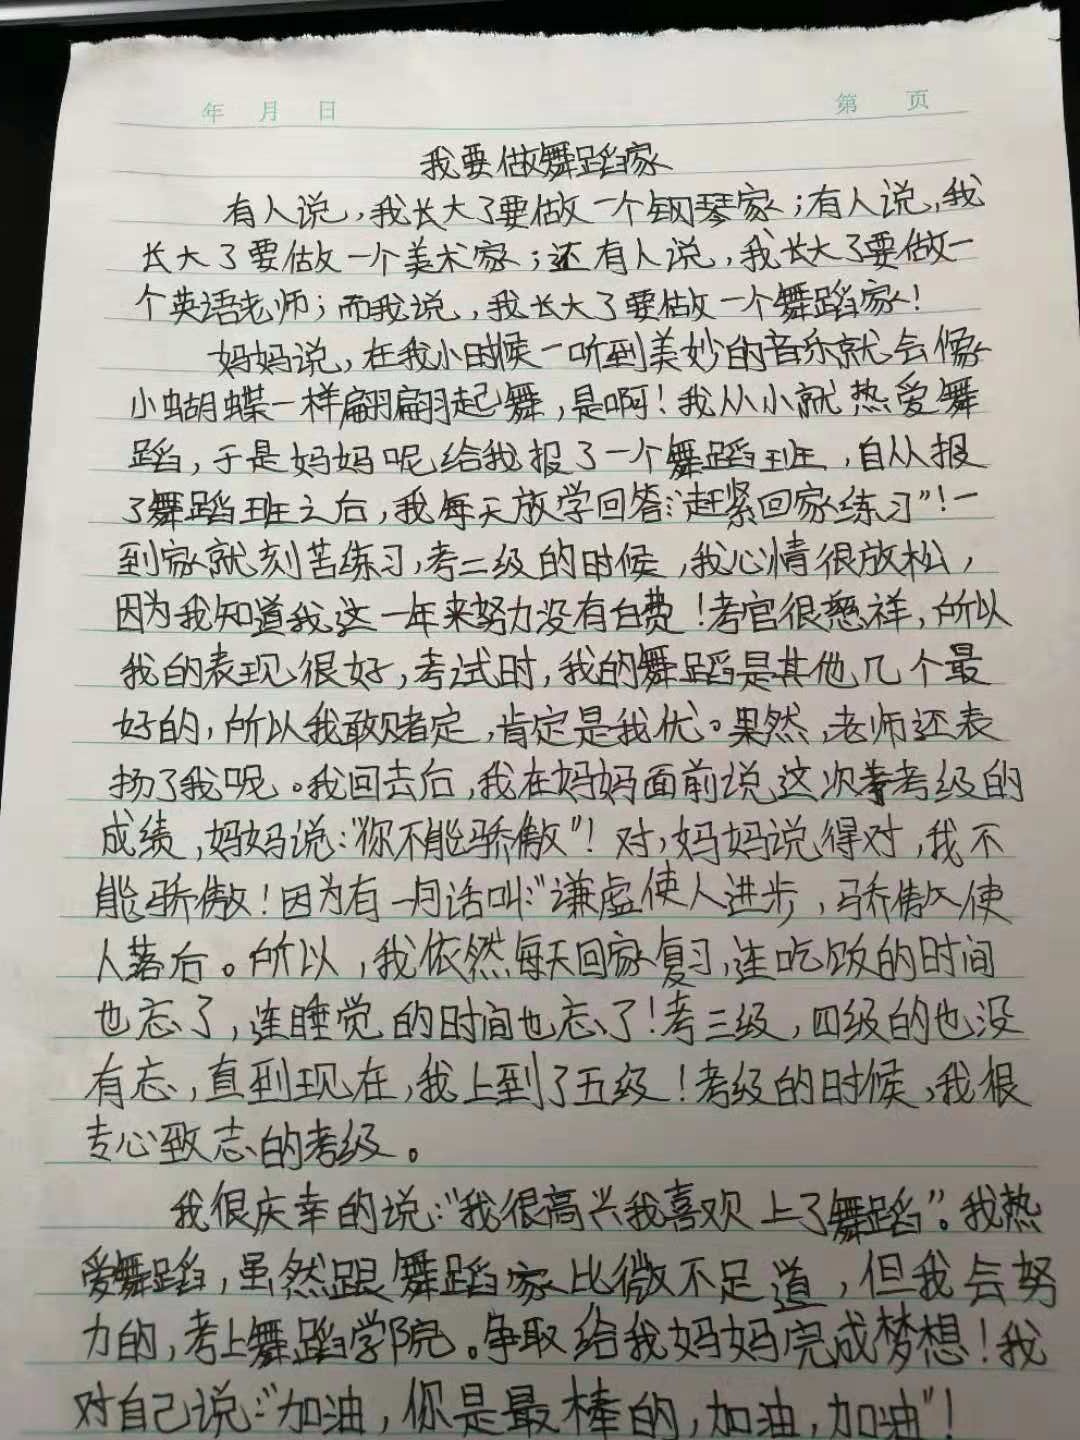 年 月 日 第 页
我要做舞蹈家
有人说,我长大了要做一个钢琴家;有人说,我
长大了要做一个美术家;还有人说,我长大了要做一
个英语老师;而我说,我长大了要做一个舞蹈家!
妈妈说,在我小时候一听到美妙的音乐就会像
小蝴蝶一样翩翩起舞,是啊!我从小就热爱舞
蹈,于是妈妈呢给我报了一个舞蹈班,自从报
了舞蹈班之后,我每天放学回答:“赶紧回家练习”!一
到家就刻苦练习,考二级的时候,我心情很放松,
因为我知道我这一年来努力没有白费!考官很慈祥,所以
我的表现很好,考试时,我的舞蹈是其他几个最
好的,所以我敢赌定,肯定是我优。果然,老师还表
扬了我呢。我回去后,我在妈妈面前说这次考级的
成绩,妈妈说:“你不能骄傲”!对,妈妈说得对,我不
能骄傲!因为有一句话叫:“谦虚使人进步,骄傲使
人落后。所以,我依然每天回家复习,连吃饭的时间
也忘了,连睡觉的时间也忘了!考三级,四级的也没
有忘,直到现在,我上到了五级!考级的时候,我很
专心致志的考级。
我很庆幸的说:“我很高兴我喜欢上了舞蹈”。我热
爱舞蹈,虽然跟舞蹈家比微不足道,但我会努
力的,考上舞蹈学院。争取给我妈妈完成梦想!我
对自己说:“加油,你是最棒的,加油,加油”!